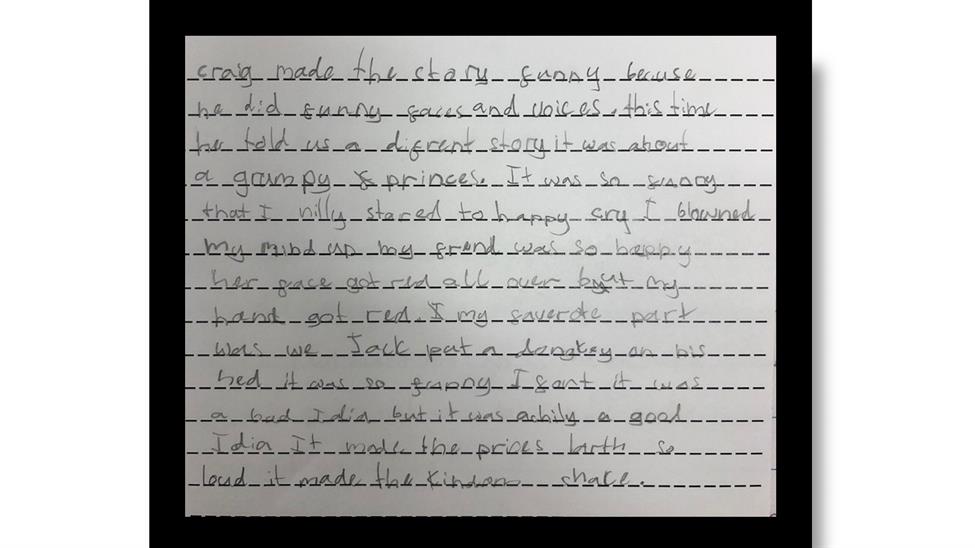 craig made the story funny becuse
he did funny faces and voices. this time
he told us a difrent story it was about
a grumpy princes. It was so funny
that I nilly stared to happy cry I blowned
my mind up my frend was so happy
her face got red all over but my
hand got red. I my faverote part
was we Jack put a dongkey on his
hed it was so funny I fant it was
a bad Idia but it was achily a good
Idia It made the prices larth so
loud it made the kindom shake.